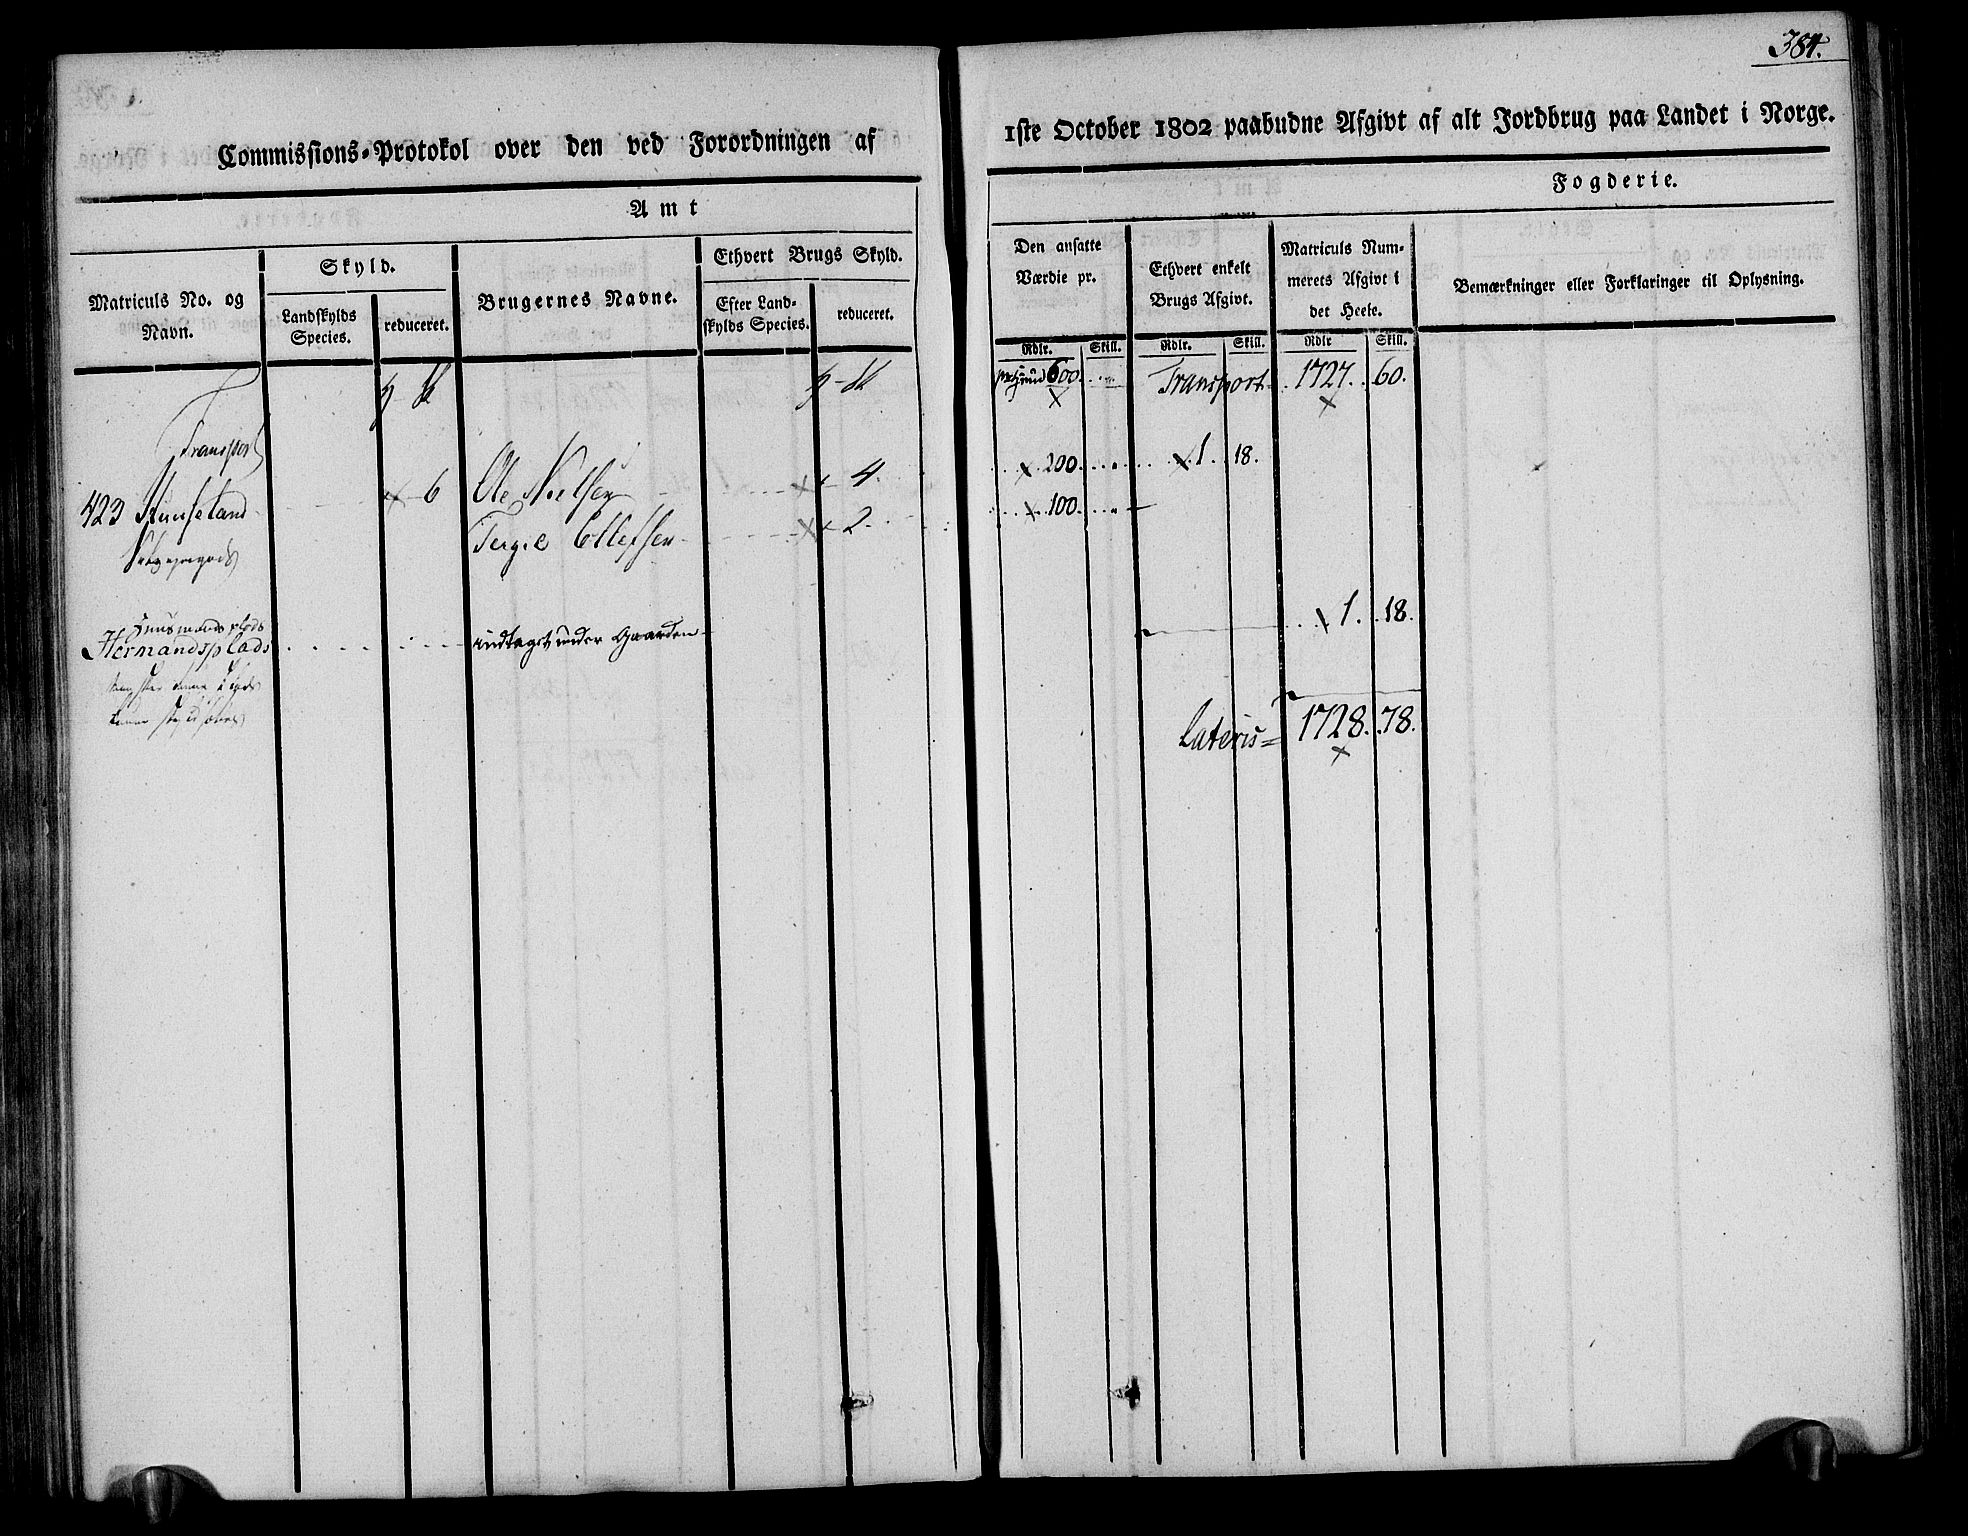 384.
Commissions-Protokol over den ved Forordningen af
1ste October 1802 paabudne Afgivt af alt Jordbrug paa Landet i Norge.
Amt
Fogderie.
Matriculs No. og Navn.
Skyld.
Landskylds Species.
reduceret.
Brugernes Navne.
Ethvert Brugs Skyld.
Efter Land-
skylds Species.
reduceret.
Den ansatte
Værdie pr.
Rdlr. Skill.
Ethvert enkelt
Brugs Afgivt.
Rdlr. Skill.
Matriculs Num-
merets Afgivt i
det Heele.
Rdlr Skill.
Bemærkninger eller Forklaringer til Oplysning.
600. Transport 1727. 60.
Transport
423 6 Ole Nielsen 4. 200. 1. 18.
Ellefsen 2. 100.
1. 18.
Huusmands plads
Hermandsplads under Gaarden
Lateris = 1728. 78.